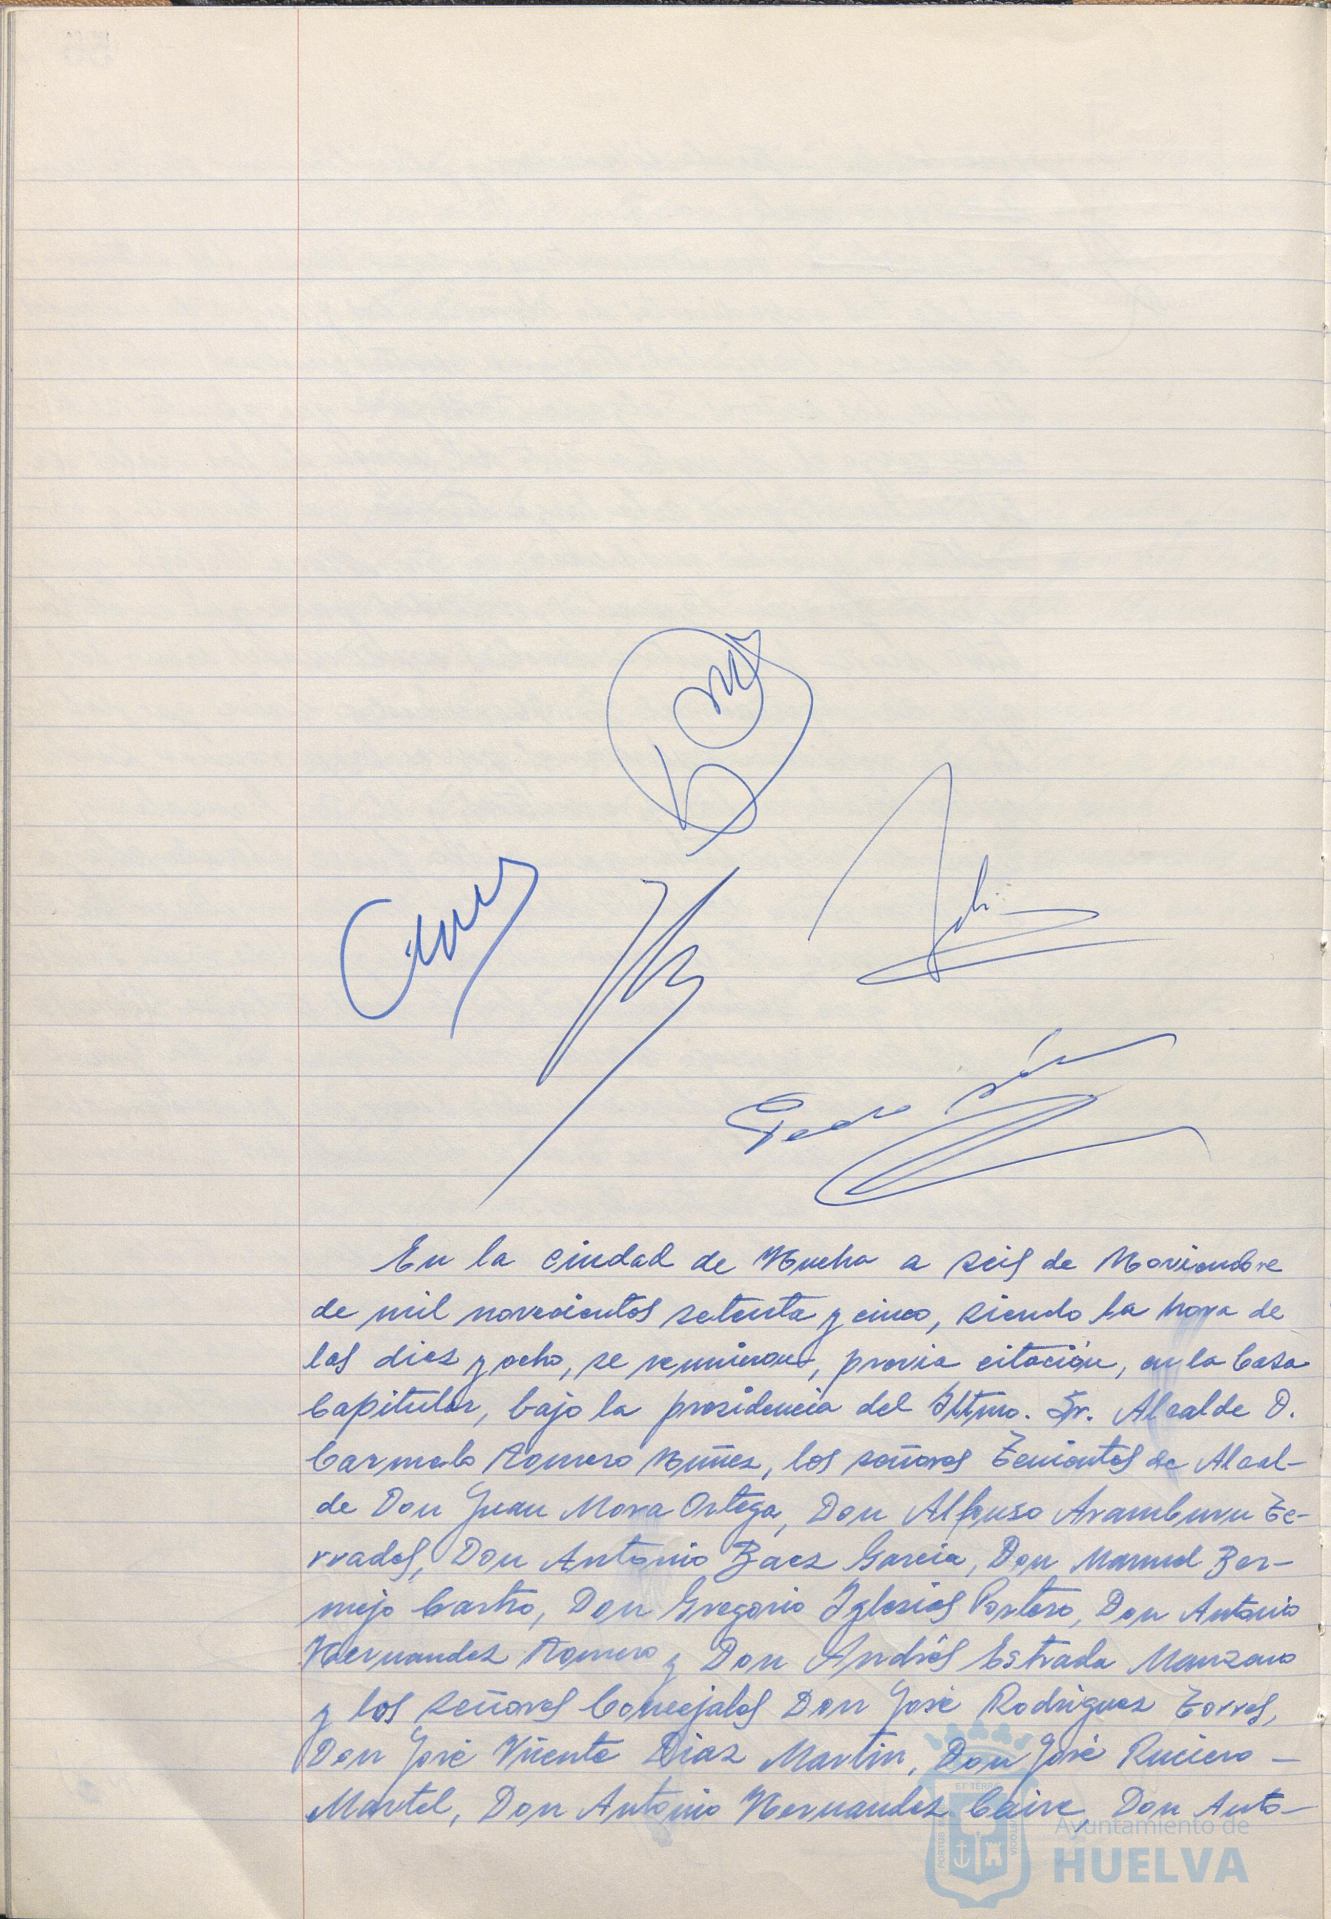 En la ciudad de Huelva a seis de Noviembre
de mil novecientos setenta y cinco, siendo la hora de
las diez y ocho, se reunieron, previa citación, en la Casa
Capitular, bajo la presidencia del Iltmo. Sr. Alcalde D.
Carmelo Romero Núñez, los señores Tenientes de Alcal-
de Don Juan Mora Ortega, Don Alfonso Aramburu Te-
rrades, Don Antonio Baez Garcia, Don Manuel Ber-
mejo Castro, Don Gregorio Iglesias Portero, Don Antonio
Hernandez Romero y Don Andrés Estrada Manzano
y los señores Concejales Don José Rodriguez Torres,
Don José Vicente Diaz Martin, Don José Ruciero
Martel, Don Antonio Hernandez Caire, Don Anto-
ET TERRAE
Ayuntamiento de
HUELVA